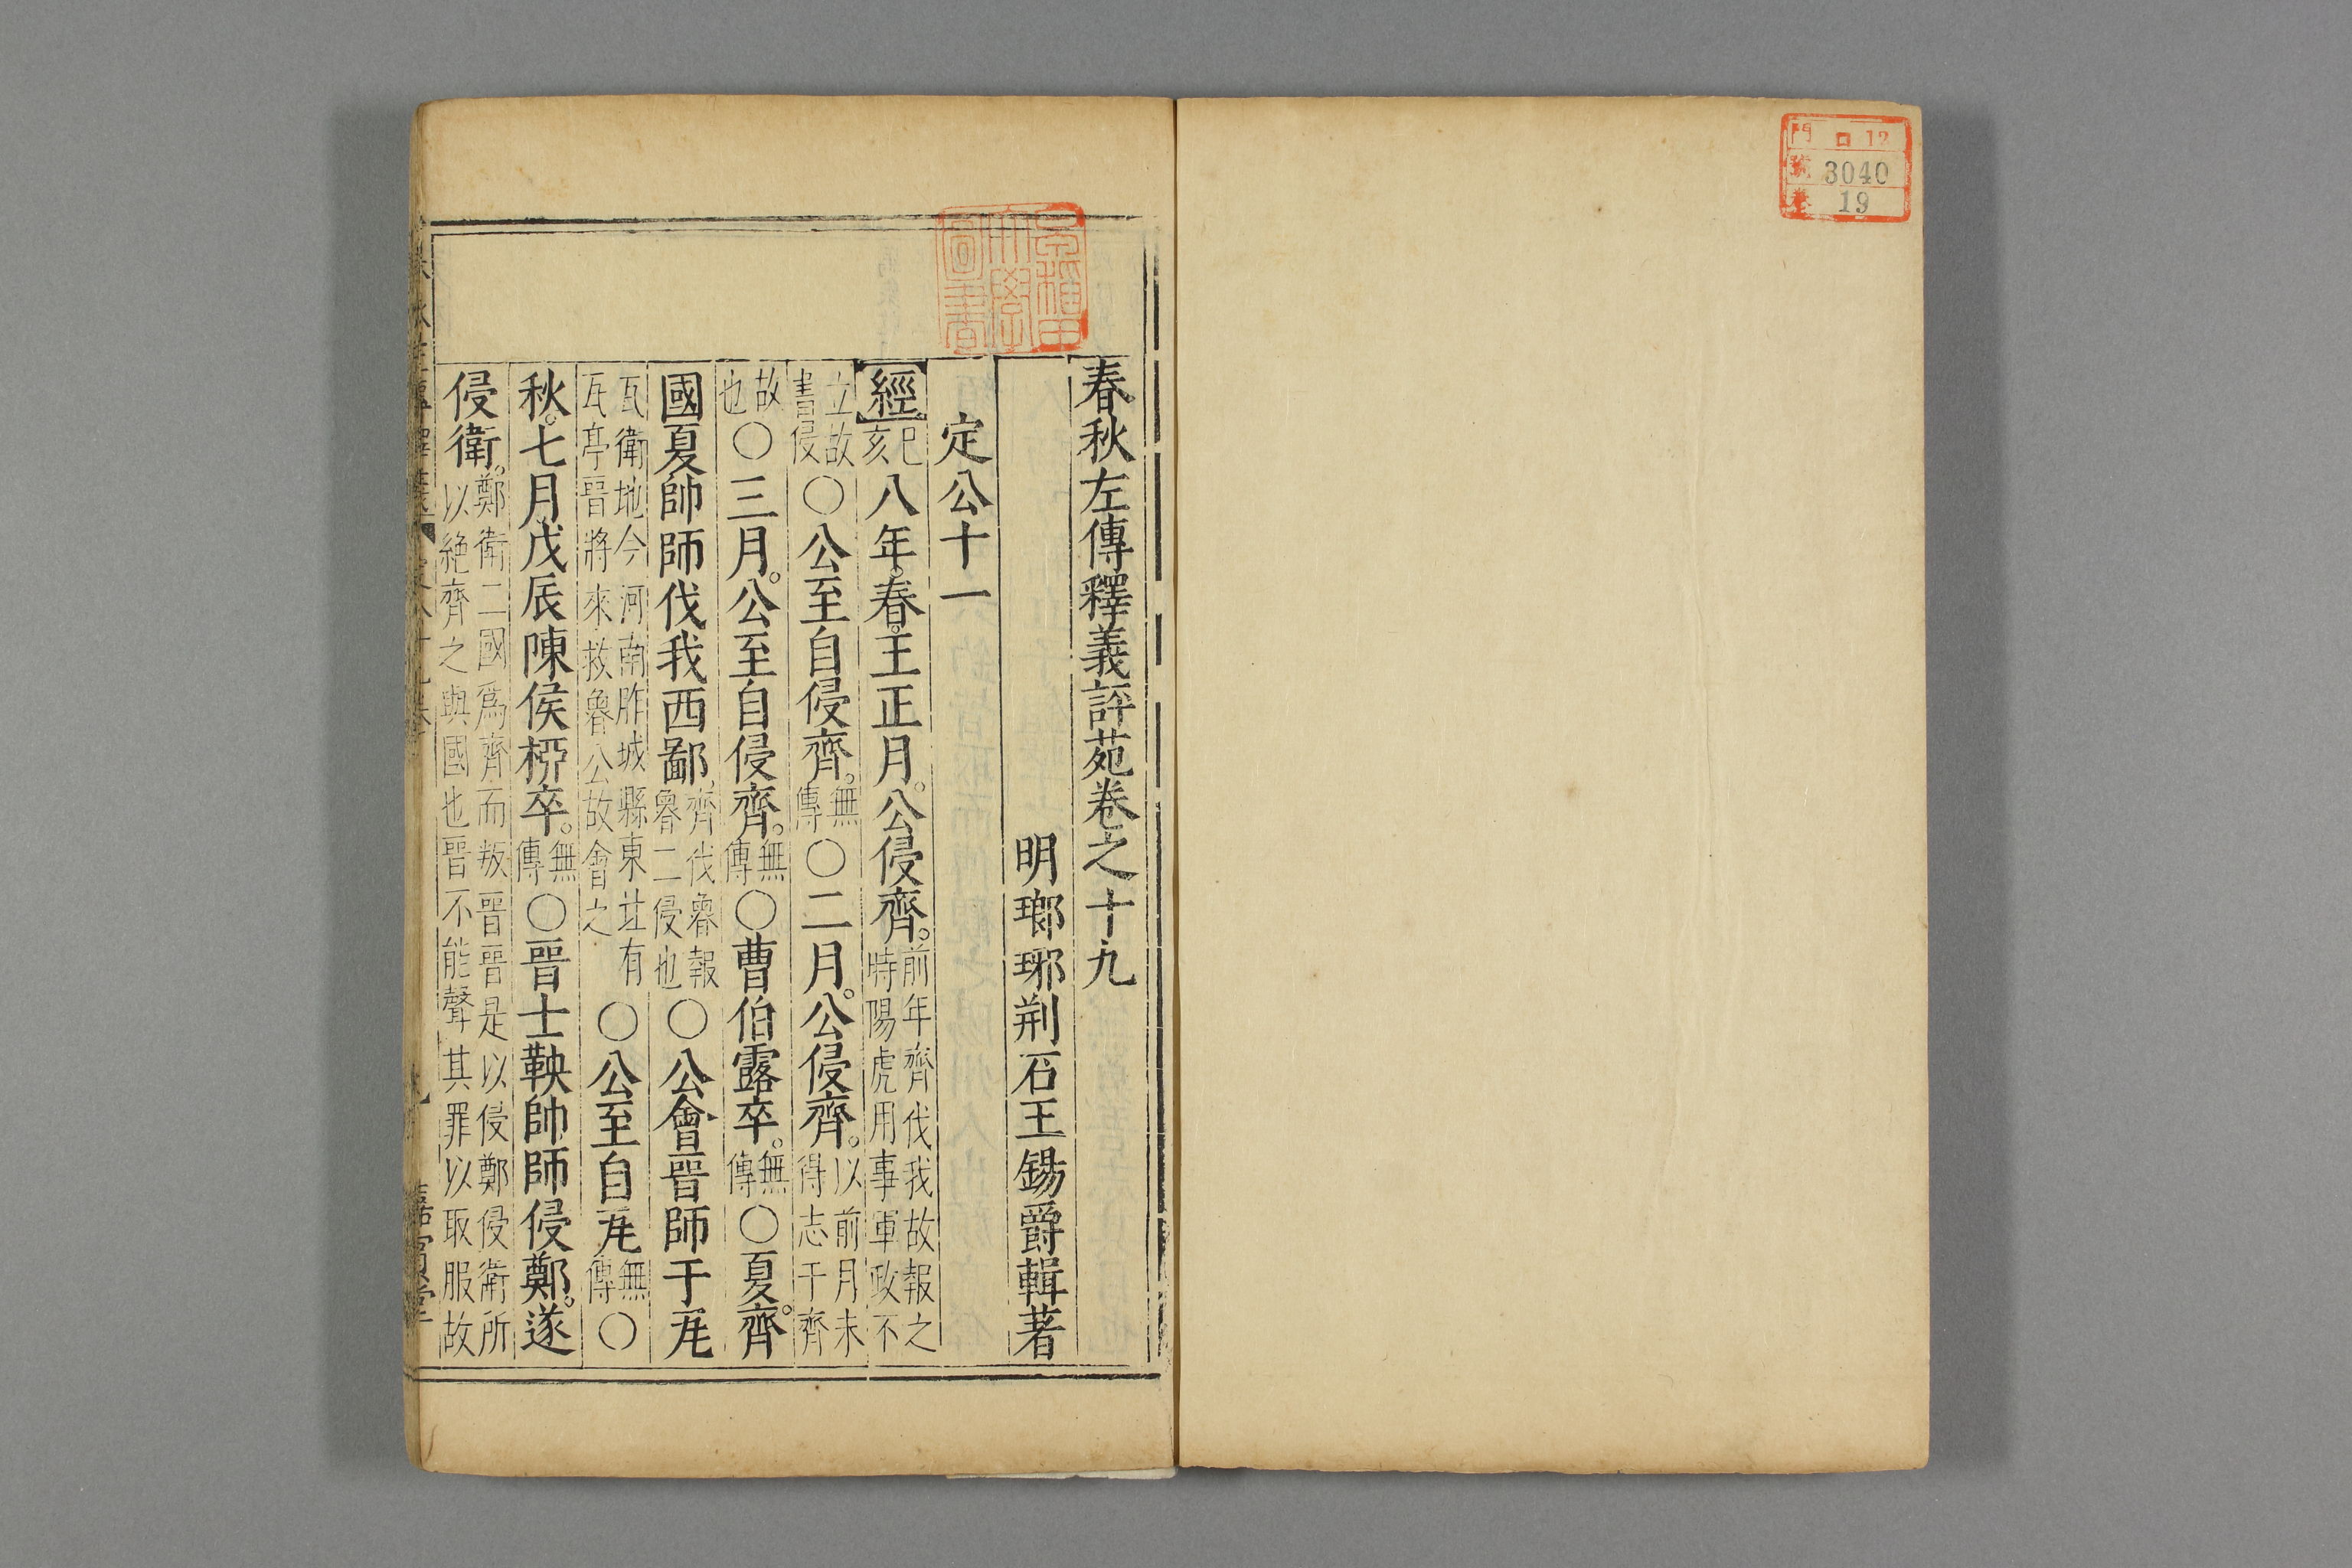 門 ロ 12
號 3040
卷 19
早稲田大學圖書
春秋左傳釋義評苑卷之十九
明瑯琊荆石王錫爵輯著
定公十一
經 己亥 八年。春。王正月。公侵齊。前年齊伐我故報之時陽虎用事軍政不
立故書侵〇公至自侵齊。無傳〇二月。公侵齊。以前月未得志于齊
故也〇三月。公至自侵齊。無傳〇曹伯露卒。無傳〇夏。齊
國夏帥師伐我西鄙。齊伐魯報魯二侵也〇公會晉師于瓦
瓦衛地今河南胙城縣東北有瓦亭晉將來救魯公故會之〇公至自瓦無傳〇
秋。七月戊辰陳侯柳卒。無傳〇晉士鞅帥師侵鄭。遂
侵衛。鄭衛二國爲齊而叛晉晉是以侵鄭侵衛所以絶齊之與國也晉不能聲其罪以取服故